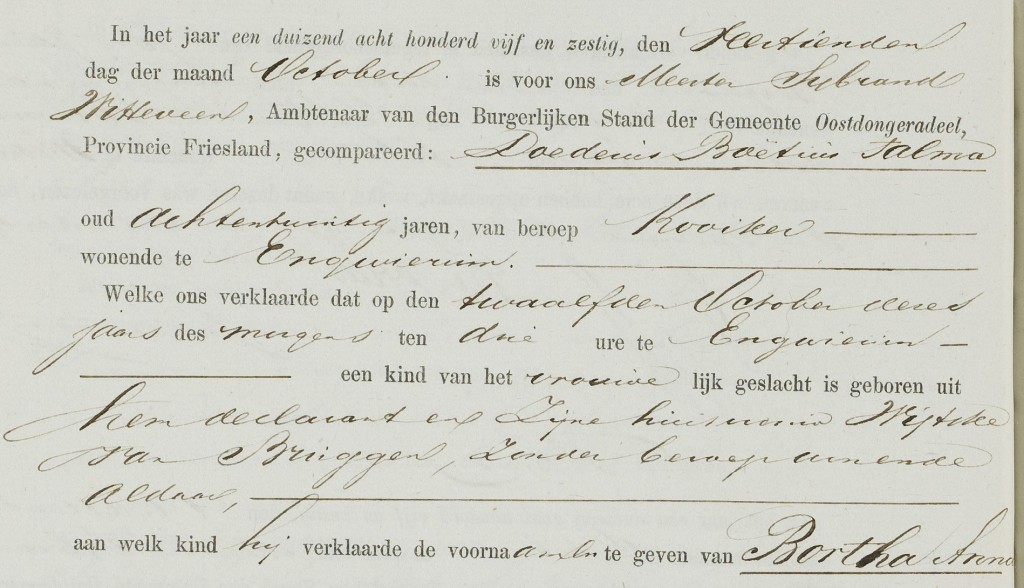 In het jaar een duizend acht honderd vijf en zestig, den Dertienden
dag der maand October is voor ons Meester Sybrand
Witteveen, Ambtenaar van den Burgerlijken Stand der Gemeente Oostdongeradeel,
Provincie Friesland, gecompareerd: Doedenius Boëtius Talma
oud Achtentwintig jaren, van beroep Kooiker
wonende te Engwierum.
Welke ons verklaarde dat op den twaalfden October dezes
jaars des morgens ten drie ure te Engwierum
een kind van het vrouwe lijk geslacht is geboren uit
hem declarant en Zijne huisvrouw Wijtske
van Bruggen, Zonder beroep wonende
Aldaar,
aan welk kind hij verklaarde de voornaamen te geven van Bortha Anna